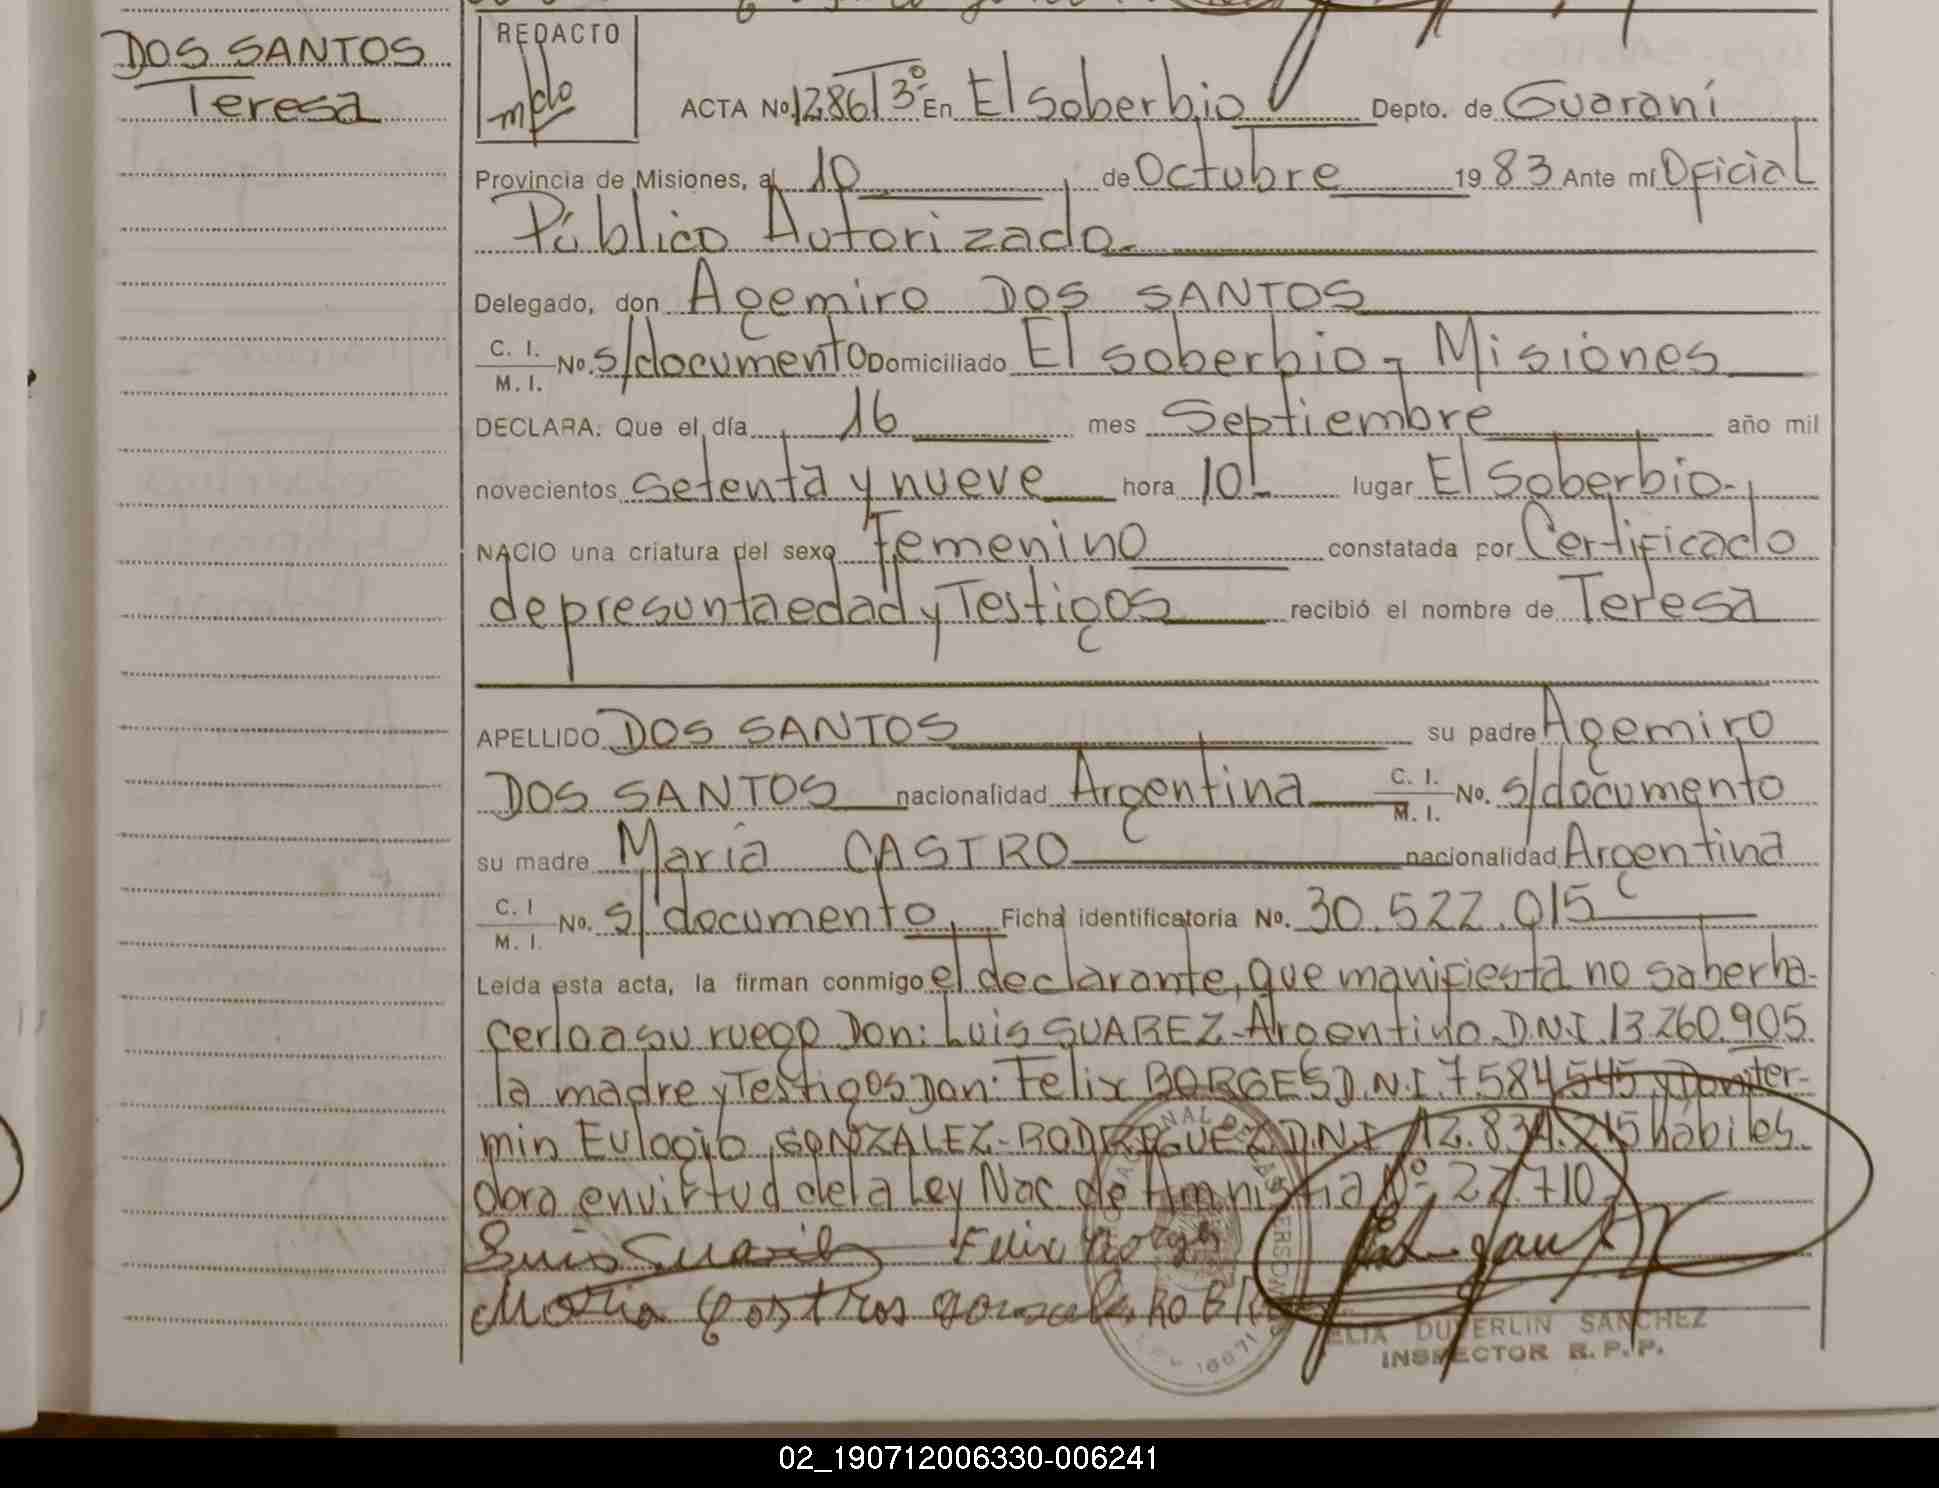 DOS SANTOS
Teresa
REDACTO
ACTA No. 1286 T 3º En El Soberbio Depto. de Guaraní
Provincia de Misiones, al 10 de Octubre 1983 Ante mí Oficial
Público Autorizado.
Delegado, don Agemiro DOS SANTOS
C. I. / M. I. No. s/documento Domiciliado El soberbio - Misiones
DECLARA: Que el día 16 mes Septiembre año mil
novecientos setenta y nueve hora 10 lugar El Soberbio.
NACIO una criatura del sexo femenino constatada por Certificado
de presunta edad y Testigos recibió el nombre de Teresa
APELLIDO DOS SANTOS su padre Agemiro
DOS SANTOS nacionalidad Argentina C. I. / M. I. No. s/documento
su madre María CASTRO nacionalidad Argentina
C. I / M. I. No. s/documento Ficha identificatoria No. 30.522.015
Leída esta acta, la firman conmigo el declarante, que manifiesta no saber ha-
cerlo a su ruego Don: Luis SUAREZ - Argentino D.N.I. 13.260.905
la madre y Testigos Don: Felix BORGES D.N.I. 7.584.545 y Don ter-
min Eulogio GONZALEZ - RODRIGUEZ D.N.I. 12.834.215 hábiles.
obro en virtud de la Ley Nac. de Amnistia Nº 22.710
Luis Suarez Felix Borges
Maria
ELIA DUVERLIN SANCHEZ
INSPECTOR R. P. P.
02_190712006330-006241